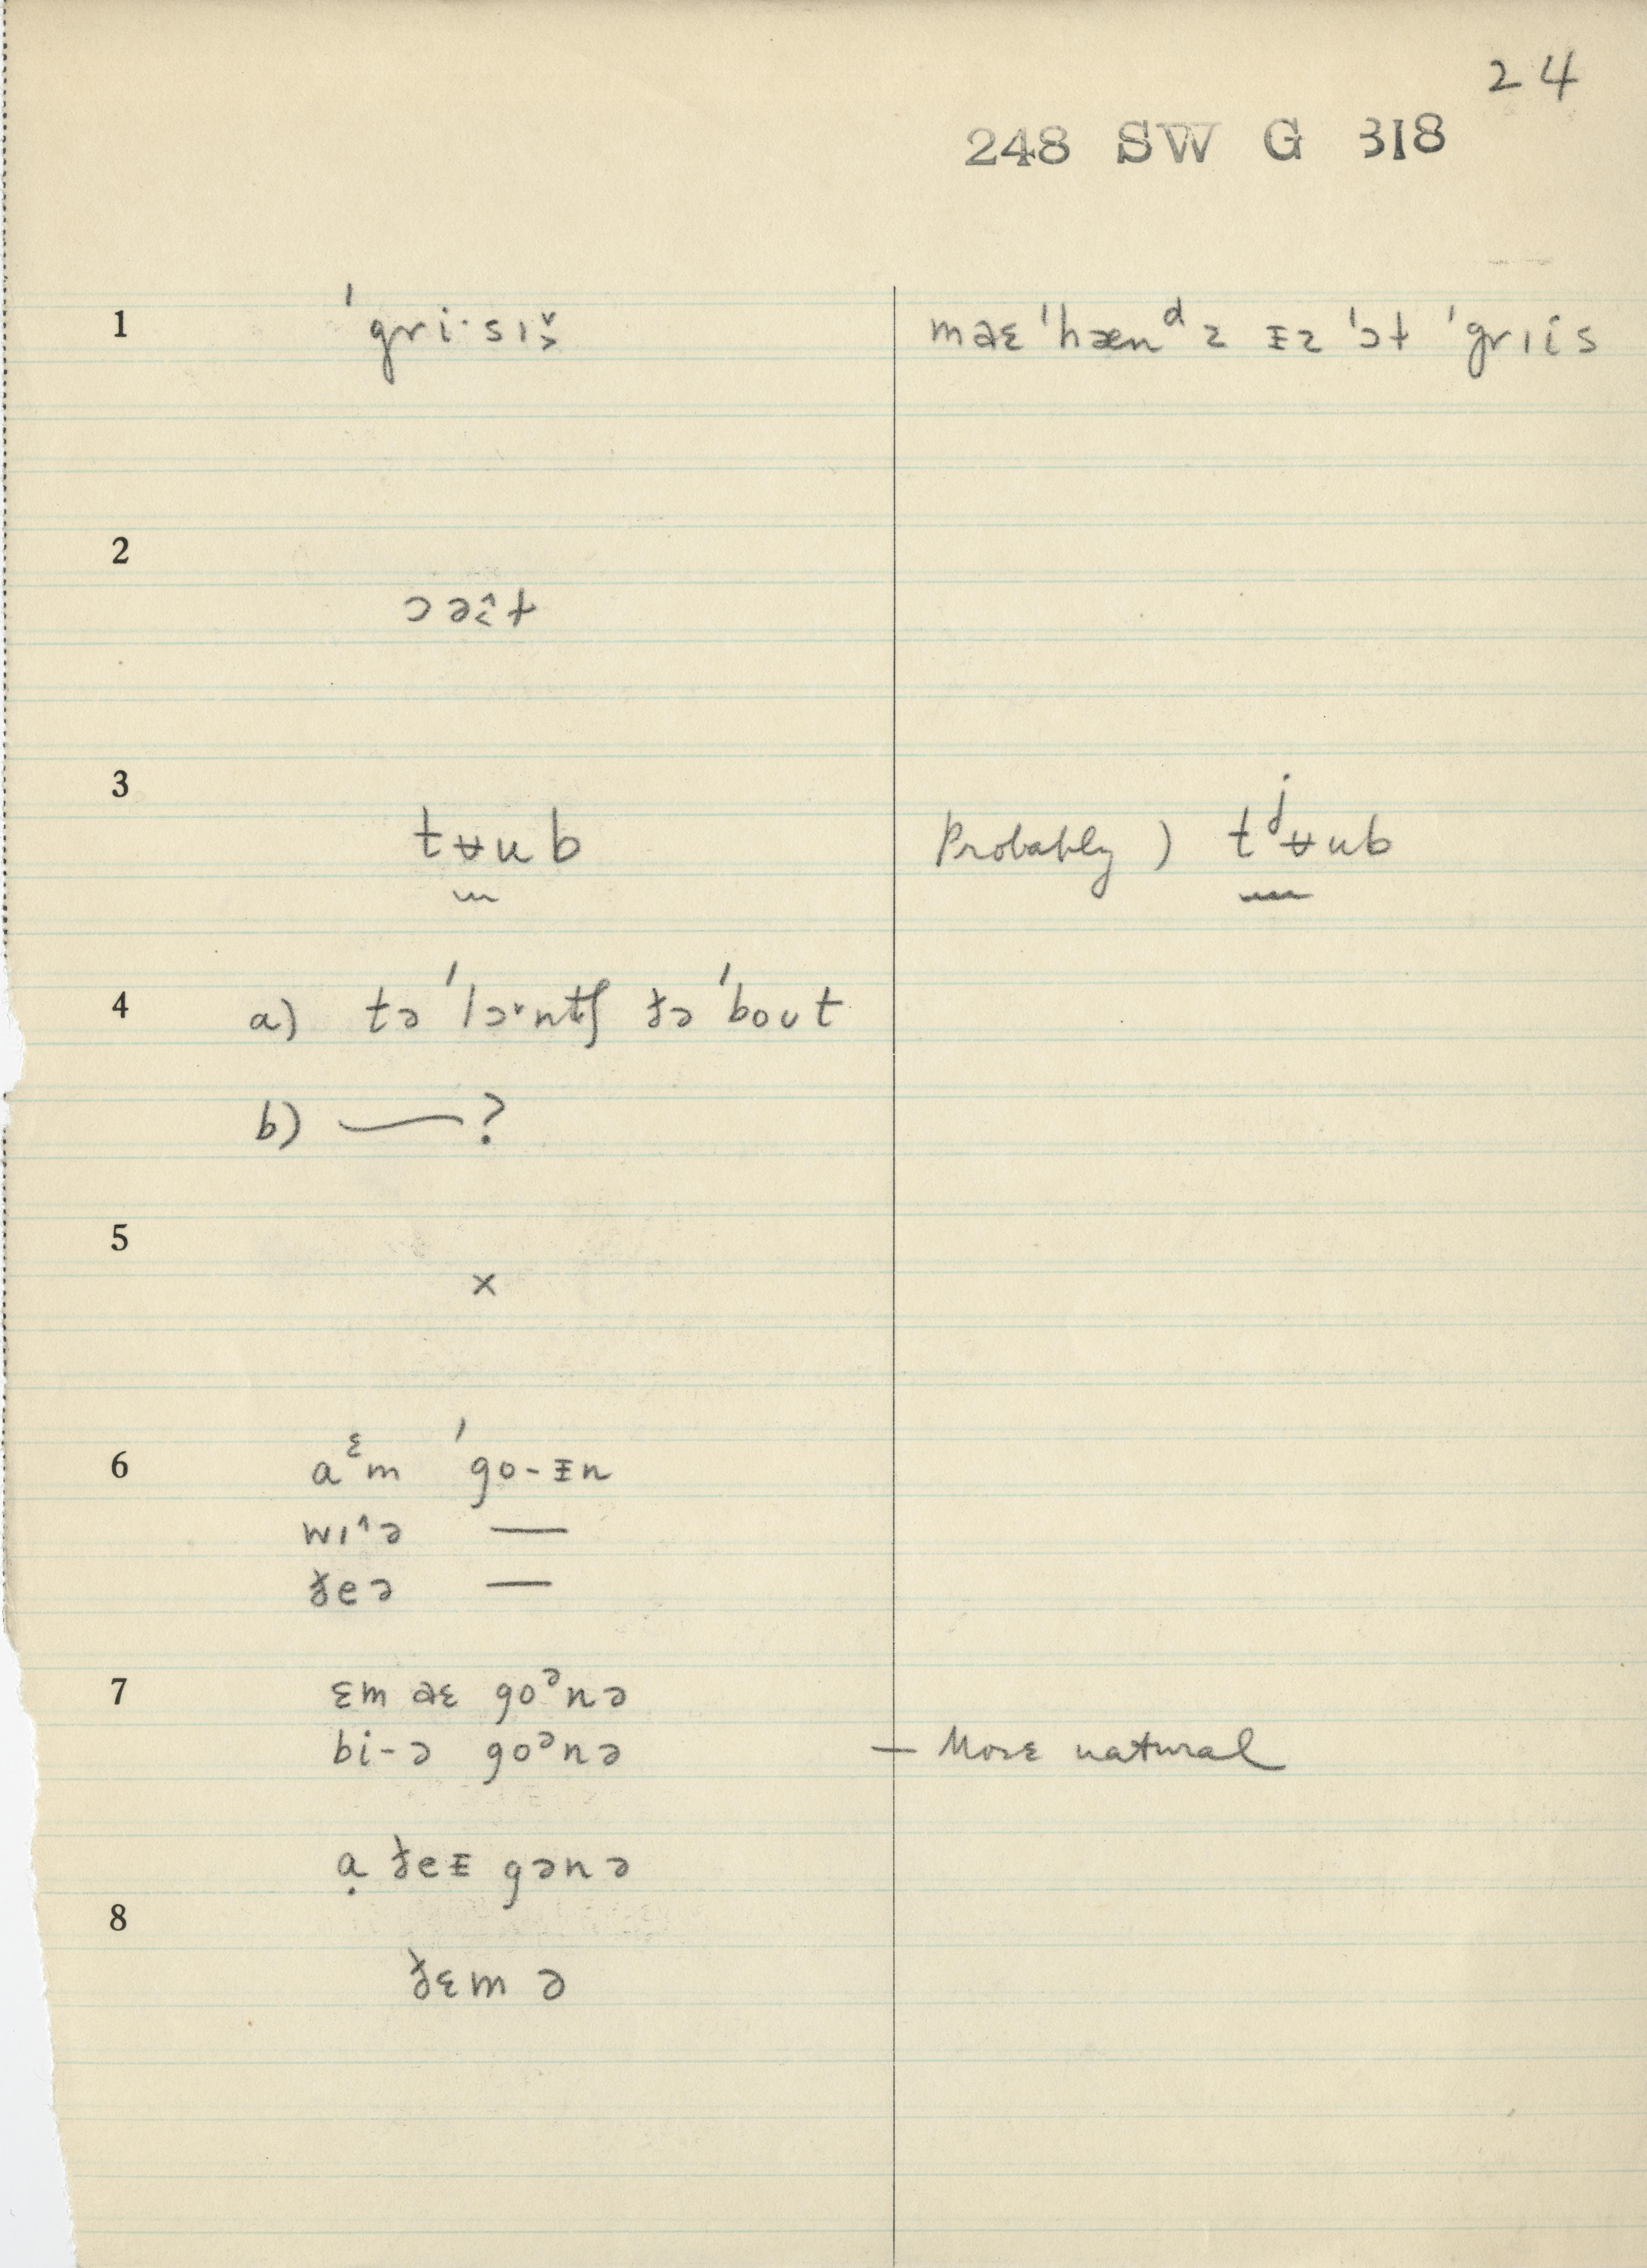 24
248 SW G 318
1 ˈgri·sɪ˅˃ maɛ ˈhænᵈz ᵻz ˈɔɫ ˈgrɪis
2 ɔəɛ̂ɫ
3 tʉub Probably ) tʲʉub
4 a) tə ˈlɔ˞ntʃ ðə ˈbout
b) — ?
5 ×
6 aᵋm ˈgo-ᵻn
wɪ˄ə —
ðeə —
7 ɛm aɛ goᵊnə
bi-ə goᵊnə — More natural
ạ ðeᵻ gənə
8 ðɛm ə